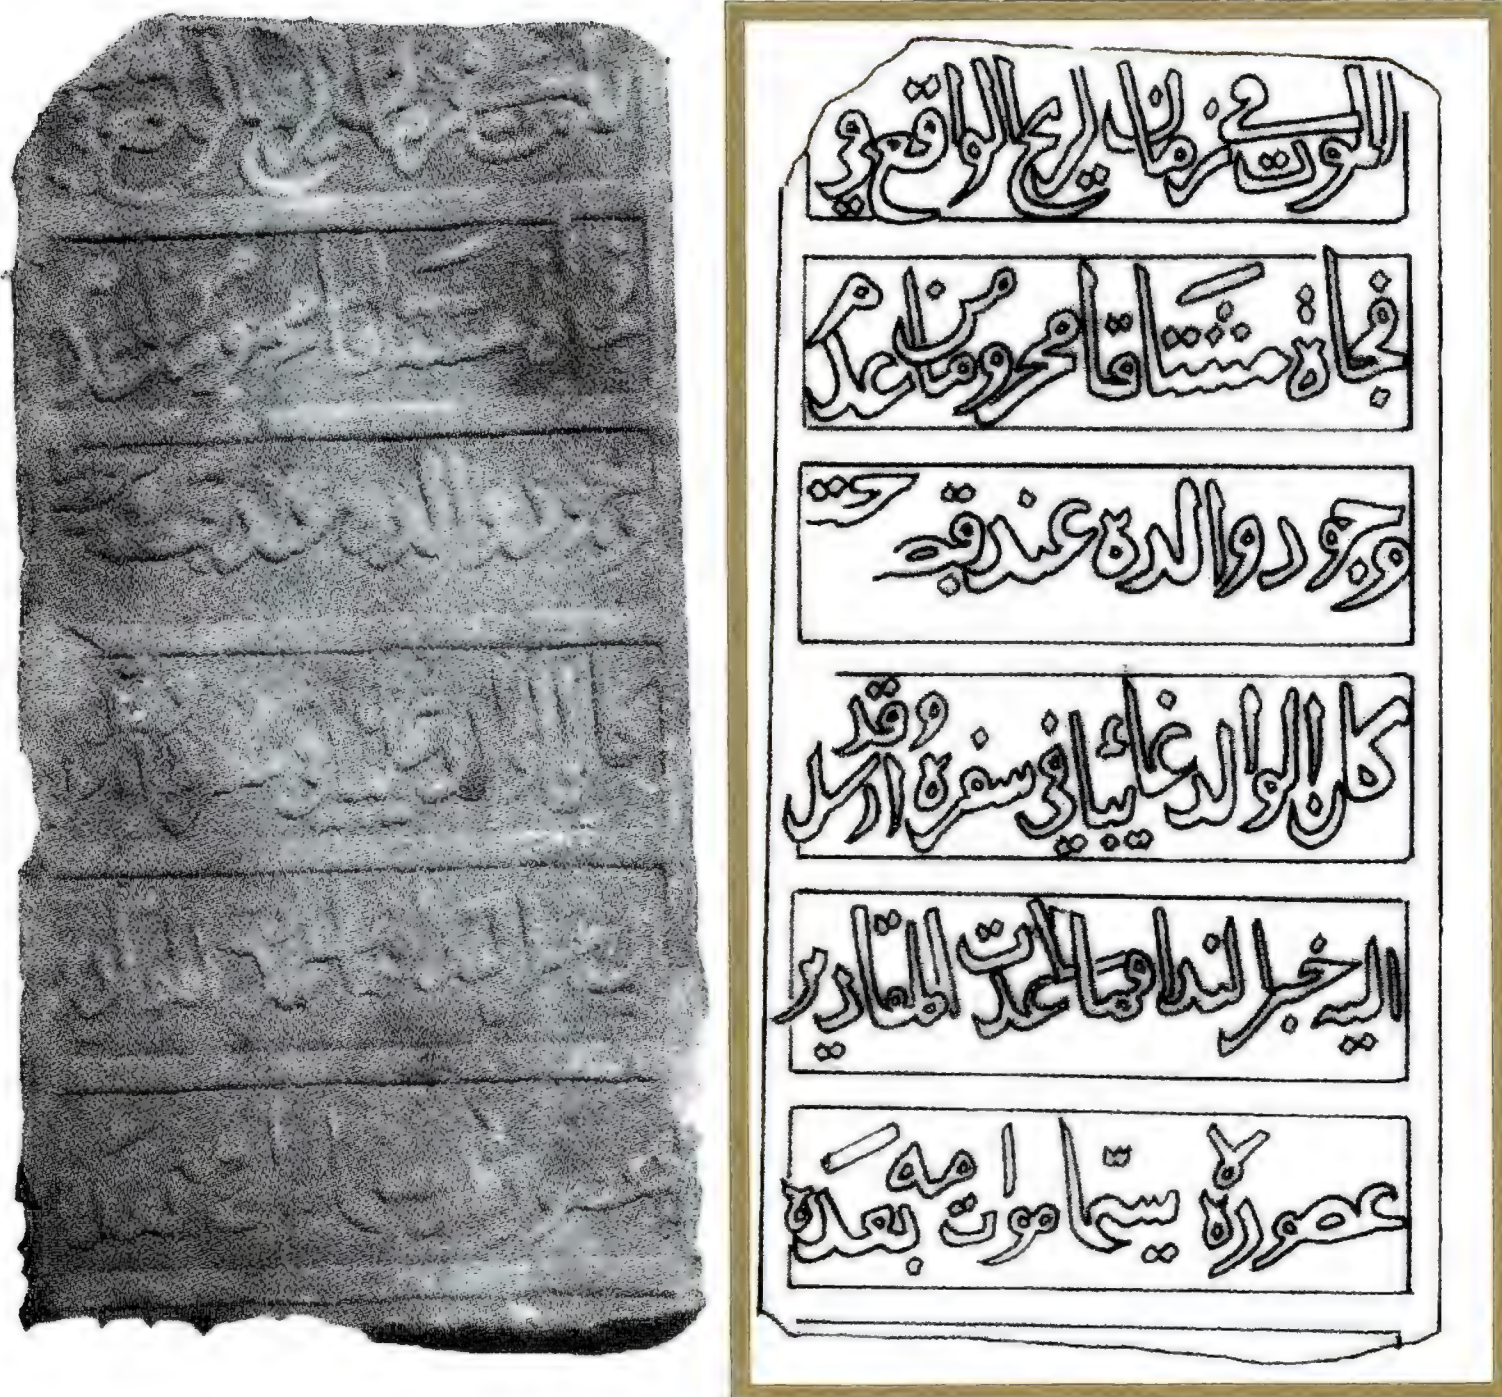 الموت في زمان ربيع الواقع في
فجاة مشتاقا محروما من عدم
وجود والده عند حتى
كان الوالد غائبا في سفره وقد ارسل
اليه خبر الندا المقادير
لا سيما موت امه بعده